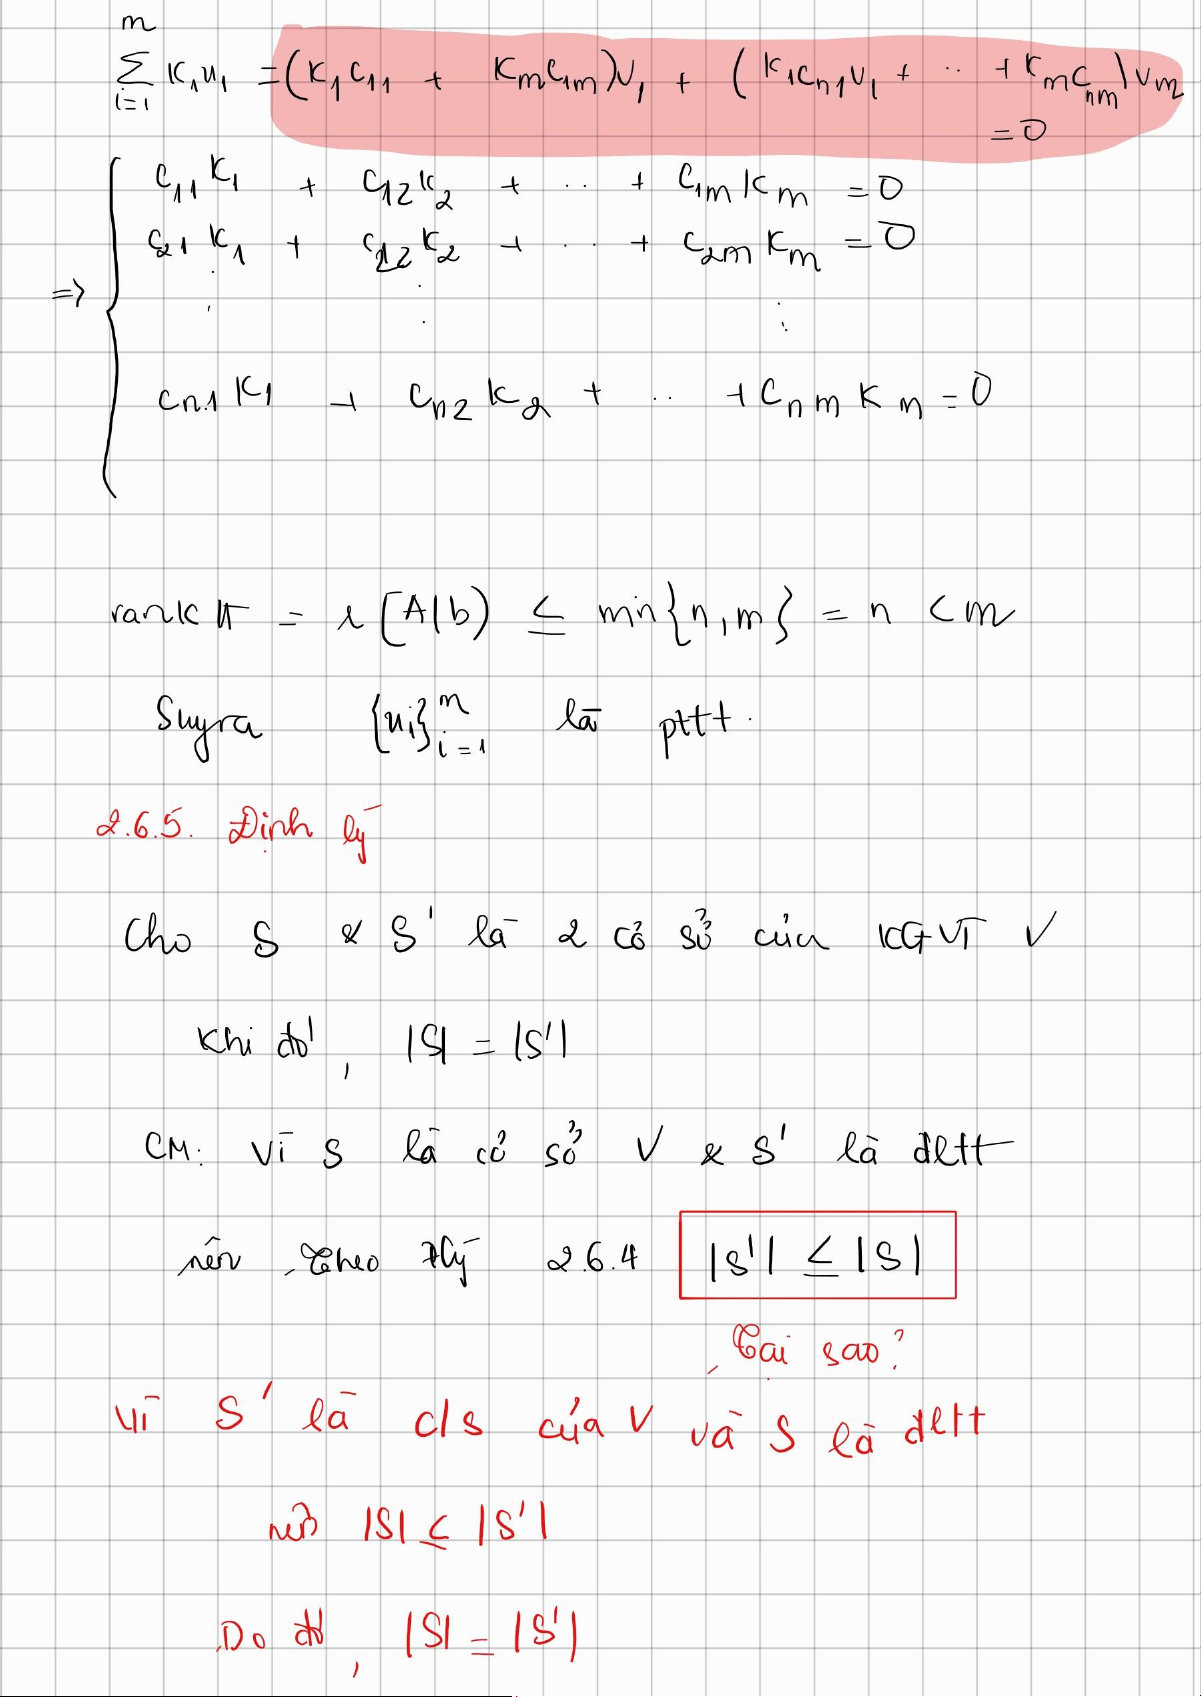 m
∑ K₁u₁ = (K₁C₁₁ + KmC₁m)V₁ + (K₁Cn₁V₁ + .. + KmCnm)Vm
i=1
= 0
C₁₁K₁ + C₁₂K₂ + .. + C₁mKm = 0
C₂₁K₁ + C₂₂K₂ + .. + C₂mKm = 0
=>
Cn₁K₁ + Cn₂K₂ + .. + CnmKm = 0
rank A = r(A|b) ≤ min{n,m} = n < m
Suy ra {ui}ᵐi=1 là pttt.
2.6.5. Định lý
Cho S & S' là 2 cơ sở của KGVT V
Khi đó, |S| = |S'|
CM: Vì S là cơ sở V & S' là đltt
nên theo đlý 2.6.4 |S'| ≤ |S|
Tại sao?
Vì S' là c/s của V và S là đltt
nên |S| ≤ |S'|
Do đó, |S| = |S'|